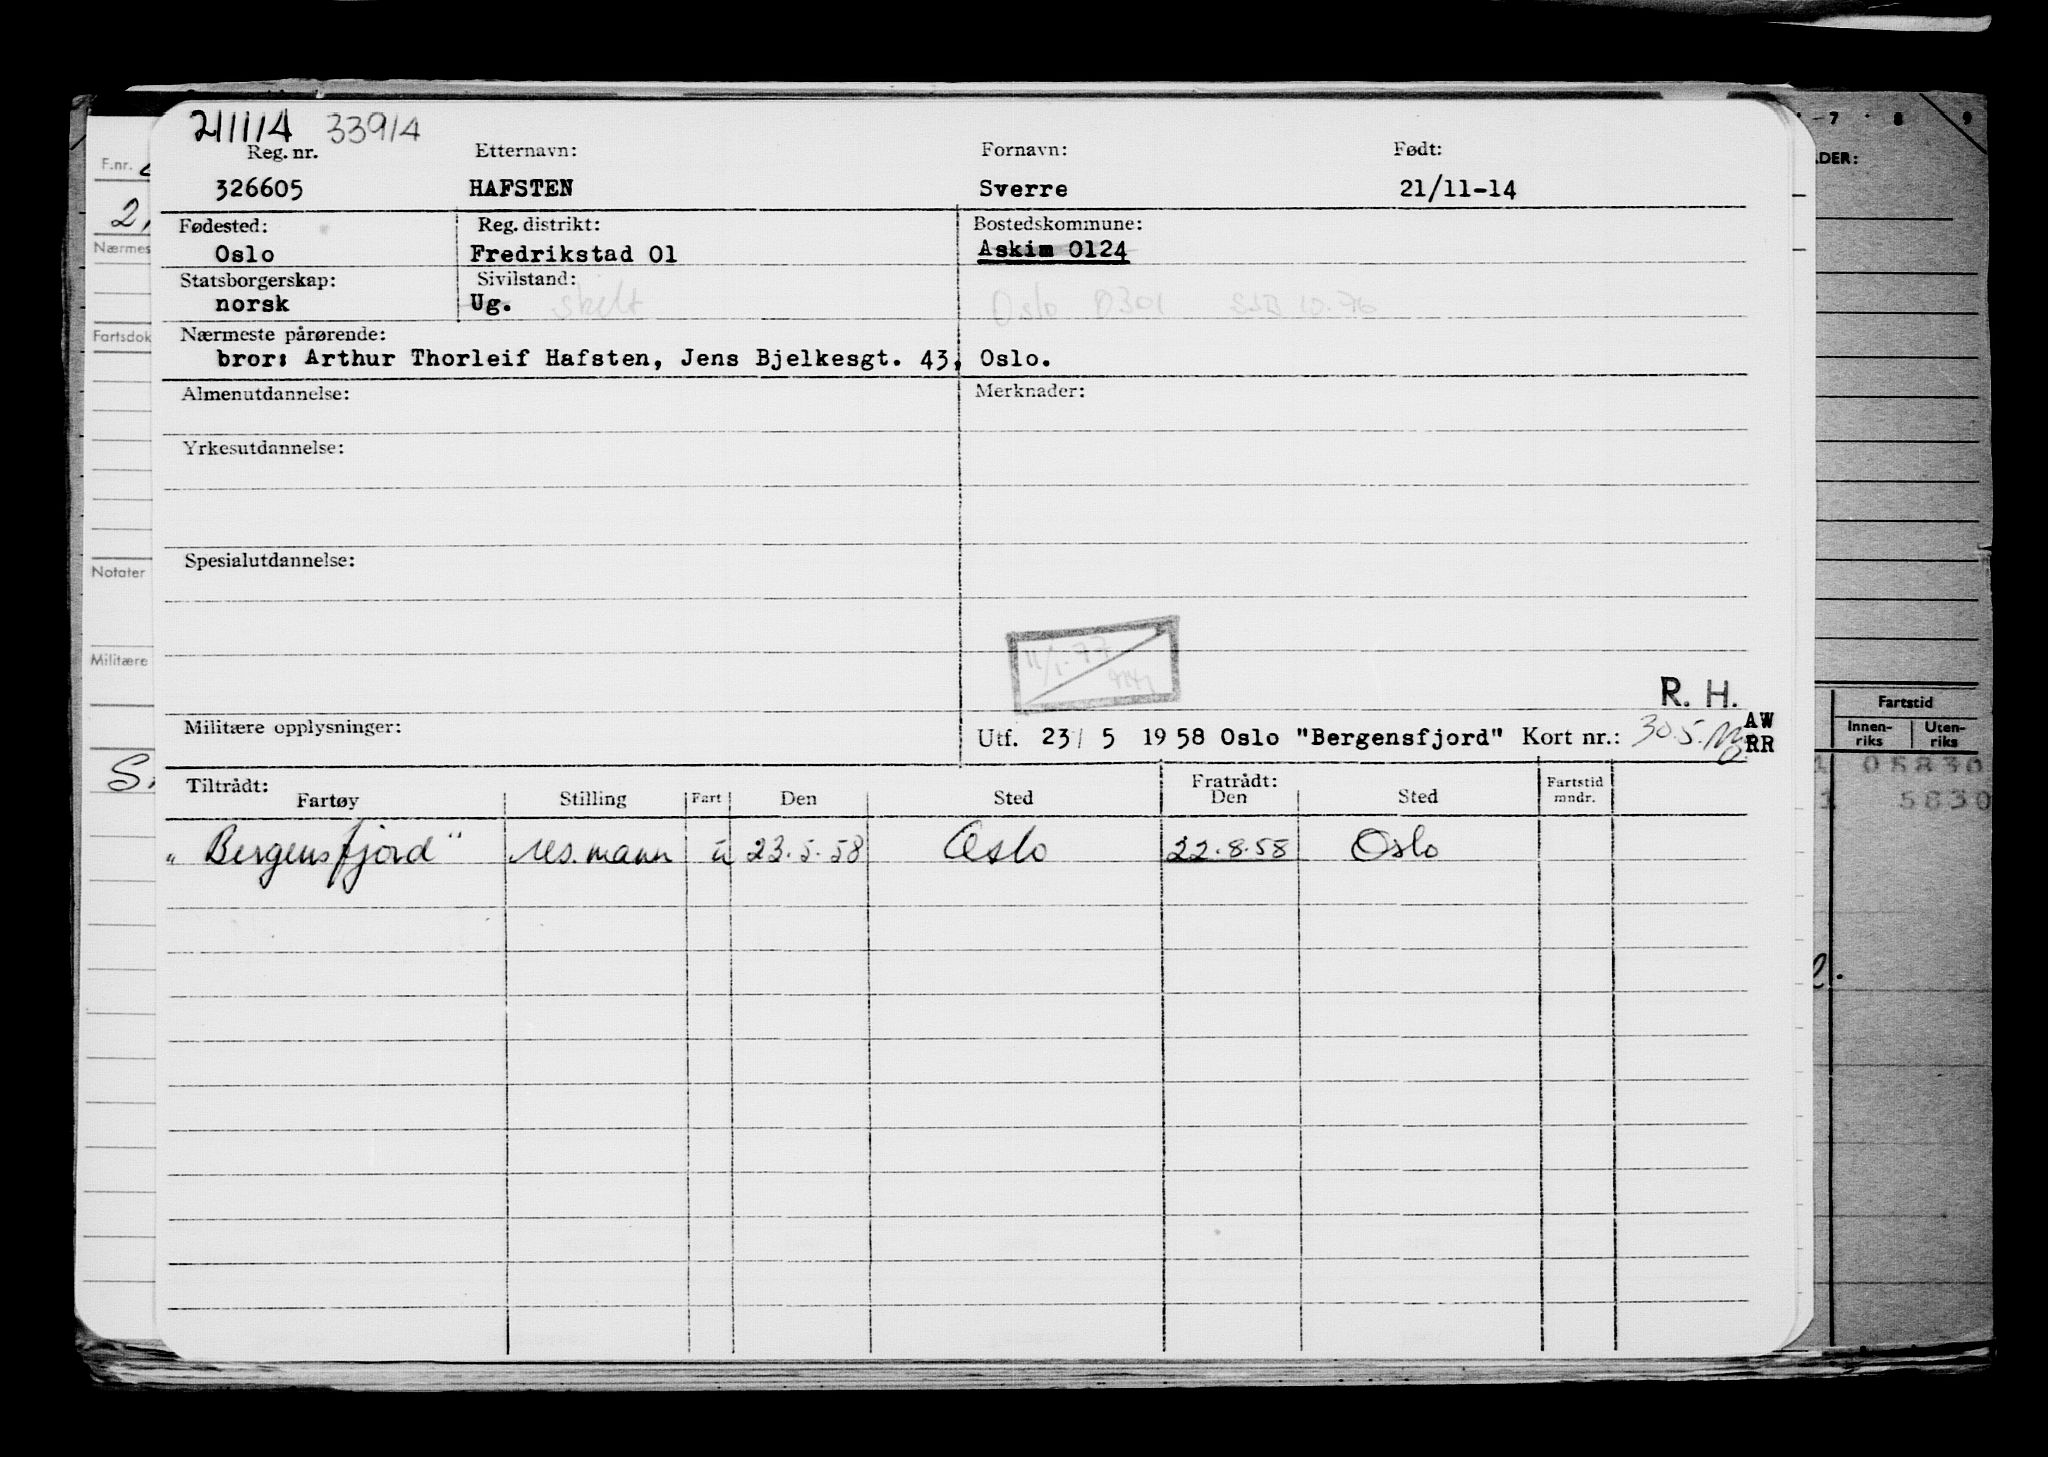 211114 33914
Reg. nr. Etternavn: Fornavn: Født:
326605 HAFSTEN Sverre 21/11-14
Fødested: Reg. distrikt: Bostedskommune:
Oslo Fredrikstad 01 Askim 0124
Statsborgerskap: Sivilstand:
norsk Ug. skilt Oslo 0301 SSB 10.76
Nærmeste pårørende:
bror: Arthur Thorleif Hafsten, Jens Bjelkesgt. 43, Oslo.
Almenutdannelse: Merknader:
Yrkesutdannelse:
Spesialutdannelse:
11/1-77
R. H.
Militære opplysninger: Utf. 23/ 5 1958 Oslo "Bergensfjord" Kort nr.: 30.5. AW
RR
Tiltrådt: Fratrådt:
Fartøy Stilling Fart Den Sted Den Sted Fartstid mndr.
"Bergensfjord" res.mann u 23.5.58 Oslo 22.8.58 Oslo
F.nr.
2,
Nærmes
Fartsdok
Notater
Militære
S.
7 8 9
DER:
Fartstid
Innen-riks Uten-riks
1 05830
1 5830